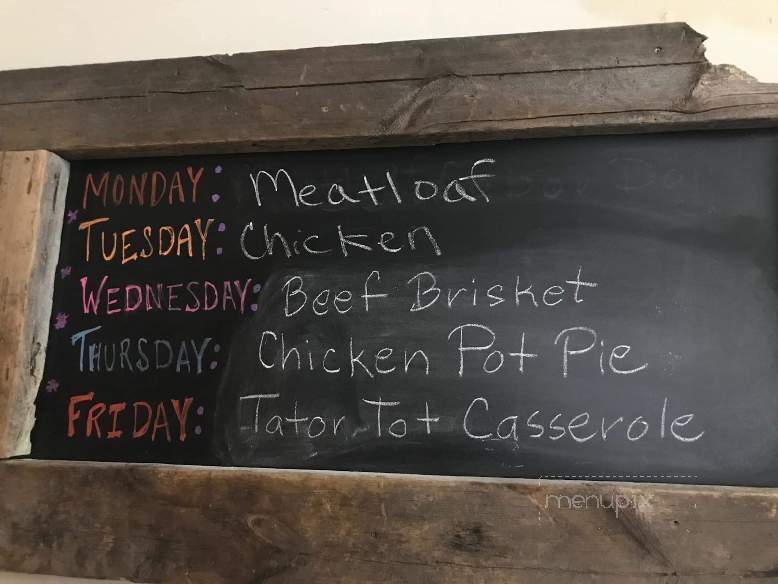 MONDAY: Meatloaf
TUESDAY: Chicken
WEDNESDAY: Beef Brisket
THURSDAY: Chicken Pot Pie
FRIDAY: Tator Tot Casserole
menupix